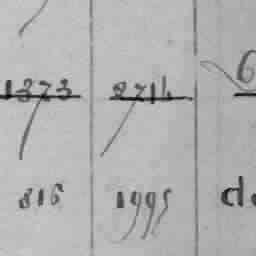 1373 2714 6
816 1995 do